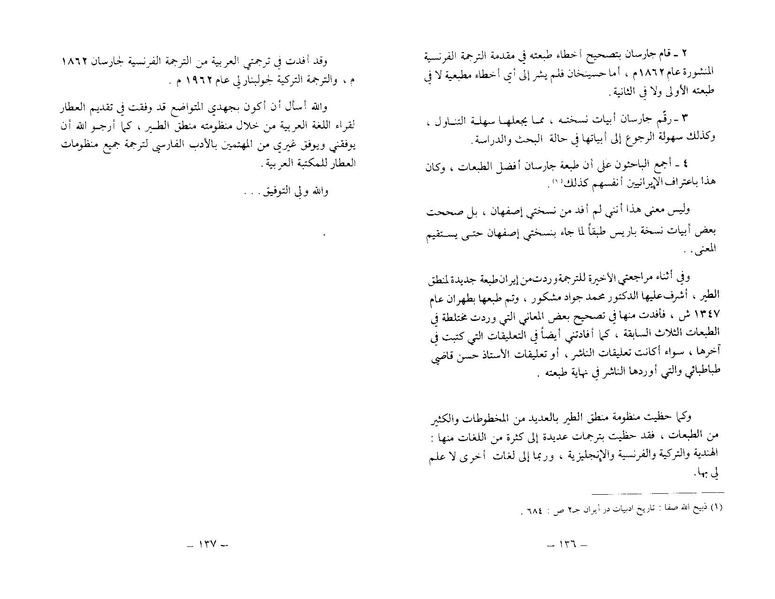 ٢ ـ قام جارسان بتصحيح أخطاء طبعته في مقدمة الترجمة الفرنسية
المنشورة عام ١٨٦٢م ، أما حسينخان فلم يشر إلى أي أخطاء مطبعية لا في
طبعته الأولى ولا في الثانية.
٣ ـ رقّم جارسان أبيات نسخته ، مما يجعلها سهلة التناول ،
وكذلك سهولة الرجوع إلى أبياتها في حالة البحث والدراسة.
٤ ـ أجمع الباحثون على أن طبعة جارسان أفضل الطبعات ، وكان
هذا باعتراف الإيرانيين أنفسهم كذلك (١).
وليس معنى هذا أنني لم أفد من نسختي إصفهان ، بل صححت
بعض أبيات نسخة باريس طبقاً لما جاء بنسختي إصفهان حتى يستقيم
المعنى..
وفي أثناء مراجعتي الأخيرة للترجمة وردت من إيران طبعة جديدة لمنطق
الطير ، أشرف عليها الدكتور محمد جواد مشكور ، وتم طبعها بطهران عام
١٣٤٧ ش ، فأفدت منها في تصحيح بعض المعاني التي وردت مختلطة في
الطبعات الثلاث السابقة ، كما أفادتني أيضاً في التعليقات التي كتبت في
آخرها ، سواء أكانت تعليقات الناشر ، أو تعليقات الأستاذ حسن قاضي
طباطبائي والتي أوردها الناشر في نهاية طبعته .
وكما حظيت منظومة منطق الطير بالعديد من المخطوطات والكثير
من الطبعات ، فقد حظيت بترجمات عديدة إلى كثرة من اللغات منها :
الهندية والتركية والفرنسية والإنجليزية ، وربما إلى لغات أخرى لا علم
لي بها.
(١) ذبيح الله صفا : تاريخ ادبيات در أيران حـ٢ ص : ٦٨٤ .
ــ ١٣٦ ــ
وقد أفدت في ترجمتي العربية من الترجمة الفرنسية لجارسان ١٨٦٢
م ، والترجمة التركية لجولبنارلي عام ١٩٦٢ م .
والله أسأل أن أكون بجهدي المتواضع قد وفقت في تقديم العطار
لقراء اللغة العربية من خلال منظومته منطق الطير ، كما أرجو الله أن
يوفقني ويوفق غيري من المهتمين بالأدب الفارسي لترجمة جميع منظومات
العطار للمكتبة العربية.
والله ولي التوفيق . . .
ــ ١٣٧ ــ